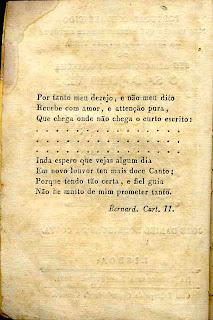 Por tanto meu dezejo, e não meu dito
Recebe com amor, e attenção pura,
Que chega onde não chega o curto escrito:
. . . . . . . . . . . . . . . . . .
. . . . . . . . . . . . . . . . . .
. . . . . . . . . . . . . . . . . .
Inda espero que vejas algum dia
Em novo louvor teu mais doce Canto;
Porque tendo tão certa, e fiel guia
Não he muito de mim prometer tanto.
Bernard. Cart. II.